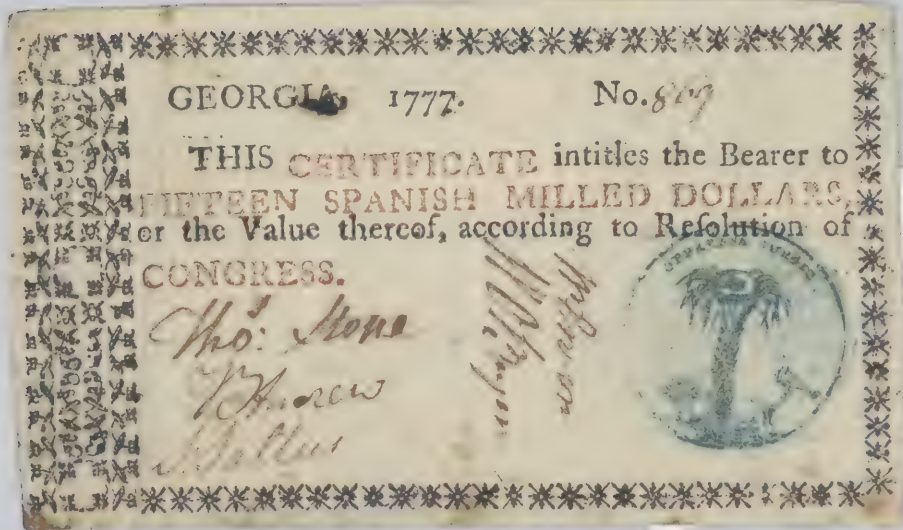 GEORGIA, 1777. No. 809
THIS CERTIFICATE intitles the Bearer to
FIFTEEN SPANISH MILLED DOLLARS,
or the Value thereof, according to Reſolution of
CONGRESS.
Thoˢ. Stone